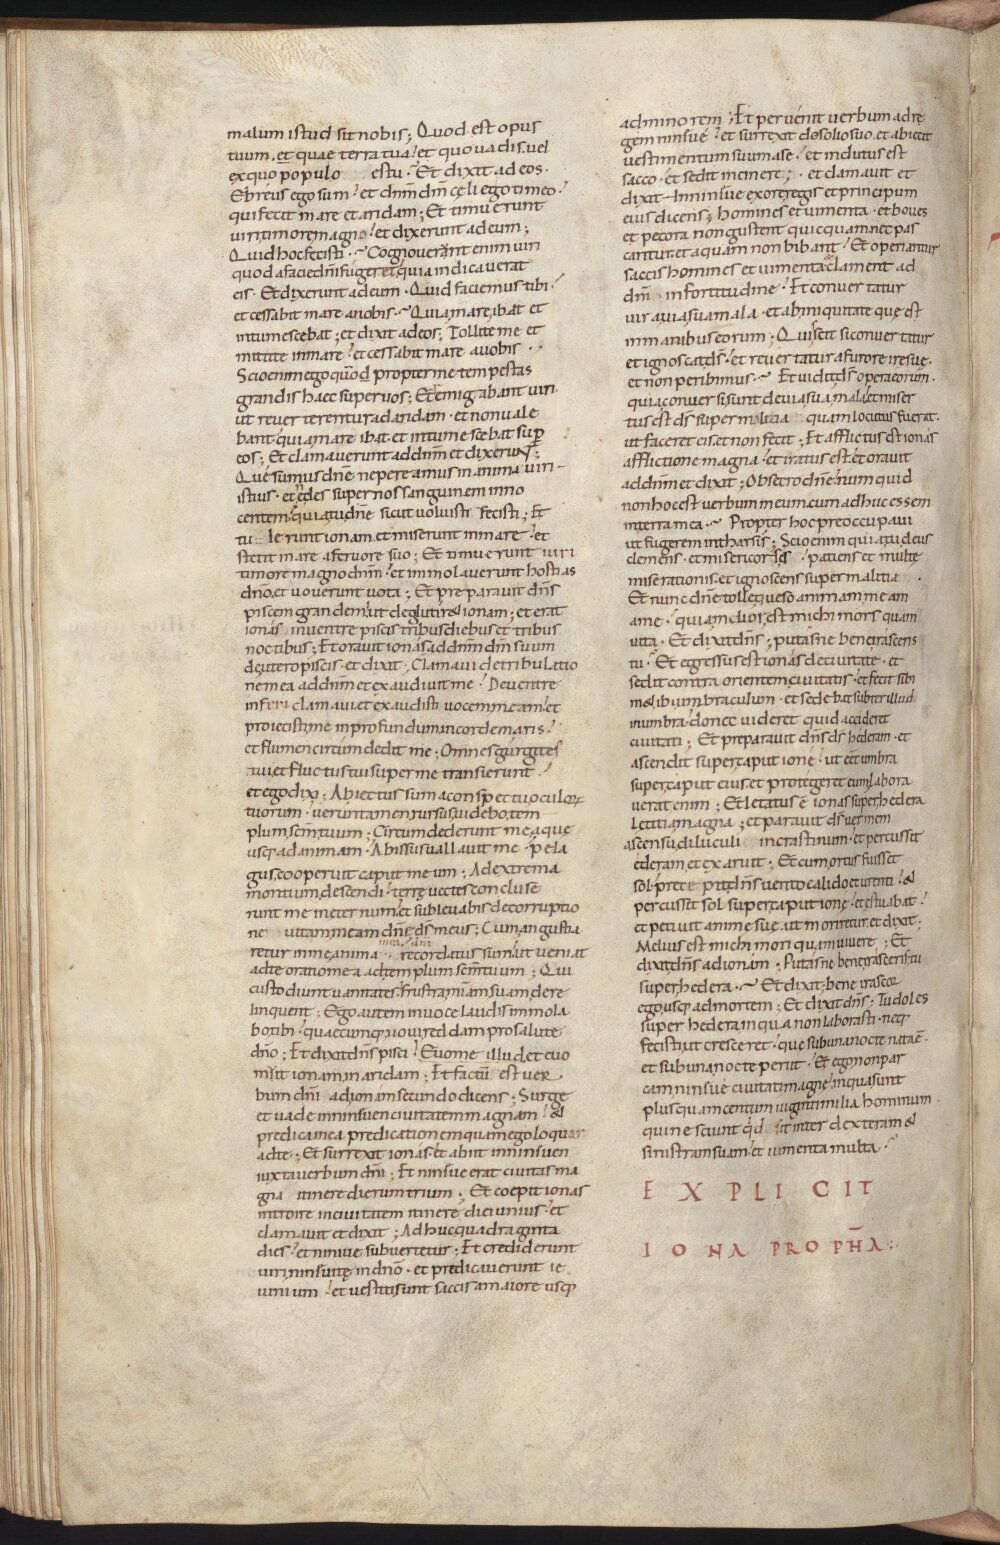 malum istud sit nobis; Quod est opus
tuum. et quae terra tua? et quo uadis. uel
ex quo populo es tu? Et dixit ad eos.
Ebreus ego sum? et dnm dm cęli ego timeo.
qui fecit mare et aridam; Et timuerunt
uiri timore magno? et dixerunt ad eum;
Quid hoc fecisti? Cognouerant enim uiri
quod a facie dni fugeret, quia indicauerat
eis. Et dixerunt ad eum. Quid faciemus tibi?
et cessabit mare a nobis? Quia mare ibat et
intumescebat; et dixit ad eos; Tollite me et
mittite in mare? et cessabit mare a uobis.,
Scio enim ego quod propter me tempestas
grandis haec super uos; Et emigabant uiri
ut reuerterentur ad aridam. et non uale
bant. quia mare ibat et intumescebat sup
eos; Et clamauerunt ad dnm et dixerunt;
Quęsumus dne ne pereamus in anima uiri
istius. et ne des super nos sanguinem inno
centem? quia tu dne sicut uoluisti fecisti; Et
tulerunt ionam. et miserunt in mare? et
stetit mare a feruore suo; Et timuerunt uiri
timore magno dnm? et immolauerunt hostias
dno. et uouerunt uota; Et preparauit dns
piscem grandem ut deglutiret ionam; et erat
ionas in uentre piscis tribus diebus et tribus
noctibus; Et orauit ionas ad dnm dm suum
de utero piscis. et dixit. Clamaui de tribulatio
ne mea ad dnm et exaudiuit me? De uentre
inferi clamaui. et exaudisti uocem meam. et
proiecisti me in profundum in corde maris?
et flumen circumdedit me; Omnes gurgites
tui et fluctus tui super me transierunt?
et ego dixi; Abiectus sum a conspectu oculor
tuorum. ueruntamen rursus uidebo tem
plum scm tuum; Circumdederunt me aque
usq; ad animam. Abissus uallauit me. pela
gus cooperuit caput meum; Ad extrema
montium descendi? terrę uectes concluse
runt me in eternum. et subleuabis de corruptio
ne uitam meam dne ds meus; Cum angusta
retur in me anima mea dni recordatus sum. ut ueniat
ad te oratio mea ad templum scm tuum; Qui
custodiunt uanitates frustra miam suam dere
linquent; Ego autem in uoce laudis immola
bo tibi. quaecumq; uoui reddam pro salute
dno; Et dixit dns pisci? Euome illud. et euo
muit ionam in aridam; Et factu est uer
bum dni ad ionam secundo dicens; Surge
et uade in niniuen ciuitatem magnam? &
predica in ea predicationem quam ego loquor
ad te; Et surrexit ionas et abiit in niniuen
iuxta uerbum dni; Et niniue erat ciuitas ma
gna itinere dierum trium; Et coepit ionas
introire in ciuitatem itinere diei unius. et
clamauit et dixit; Adhuc quadraginta
dies? et niniue subuertetur; Et crediderunt
uiri niniuitę in dno. et predicauerunt ie
unium? et uestiti sunt saccis a maiore usq;
ad minorem; Et peruenit uerbum ad re
gem niniue? et surrexit de solio suo. et abiecit
uestimentum suum a se? et indutus est
sacco. et sedit in cinere;. et clamauit et
dixit. In niniue ex ore regis et principum
eius dicens; Homines et iumenta. et boues
et pecora non gustent quicquam. nec pas
cantur. et aquam non bibant? Et operiantur
saccis homines et iumenta. & clament ad
dm in fortitudine? Et conuertatur
uir a uia sua mala. et ab iniquitate que est
in manibus eorum; Quis scit si conuertatur
et ignoscat ds. et reuertatur a furore ire sue.
et non peribimus? Et uidit ds opera eorum.
quia conuersi sunt de uia sua mala. et miser
tus est ds super malicia quam locutus fuerat.
ut faceret eis. et non fecit; Et afflictus est ionas
afflictione magna? et iratus est. et orauit
ad dnm et dixit; Obsecro dne numquid
non hoc est uerbum meum cum adhuc essem
in terra mea? Propter hoc preoccupaui
ut fugerem in tharsis; Scio enim quia tu deus
clemens. et misericors es patiens et multę
miserationis. et ignoscens super malitia.
Et nunc dne tolle queso animam meam
a me? quia melior est michi mors quam
uita. Et dixit dns; putasne bene irasceris
tu? Et egressus est ionas de ciuitate. et
sedit contra orientem ciuitatis. et fecit sibi
met ibi umbraculum. et sedebat subter illud
in umbra. donec uideret quid accideret
ciuitati; Et preparauit dns ds hederam. et
ascendit super caput ione? ut esset umbra
super caput eius. et protegeret eum. labora
uerat enim; Et letatus e ionas super hedera
letitia magna; et parauit ds uermem
ascensu diluculi in crastinum. et percussit
ederam et exaruit; Et cum ortus fuisset
sol. precepit dns uento calido et urenti? &
percussit sol super caput ionę. et estuabat?
et petiuit anime sue. ut moriretur. et dixit;
Melius est michi mori quam uiuere; Et
dixit dns ad ionam; Putasne bene irasceris tu
super hedera? Et dixit; bene irascor
ego usq; ad mortem; Et dixit dns; Tu doles
super hederam in qua non laborasti. neq;
fecisti ut cresceret? que sub una nocte nata e.
et sub una nocte periit? Et ego non par
cam niniue ciuitati magne in qua sunt
plusquam centum uiginti milia hominum
qui nesciunt qd sit inter dexteram &
sinistram suam. et iumenta multa?
EXPLICIT
IONA PROPHA;